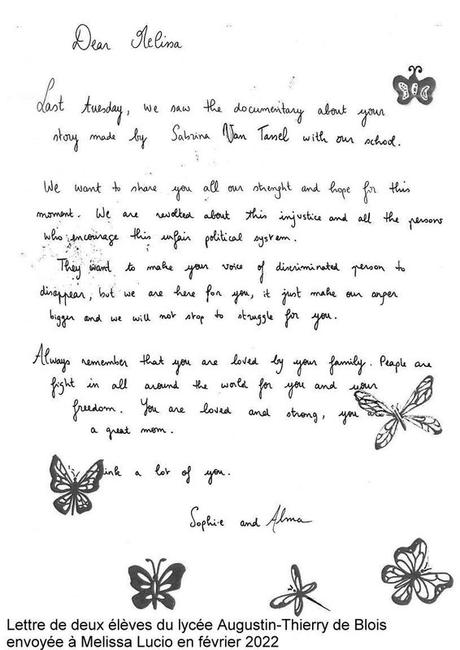 Dear Melissa
Last tuesday, we saw the documentary about your
story made by Sabrina Van Tassel with our school.
We want to share you all our strenght and hope for this
moment. We are revolted about this injustice and all the persons
who encourage this unfair political system.
They want to make your voice of discriminated person to
disappear, but we are here for you, it just make our anger
bigger and we will not stop to struggle for you.
Always remember that you are loved by your family. People are
fight in all around the world for you and your
freedom. You are loved and strong, you are
a great mom.
a lot of you.
Sophie and Alma
Lettre de deux élèves du lycée Augustin-Thierry de Blois
envoyée à Melissa Lucio en février 2022